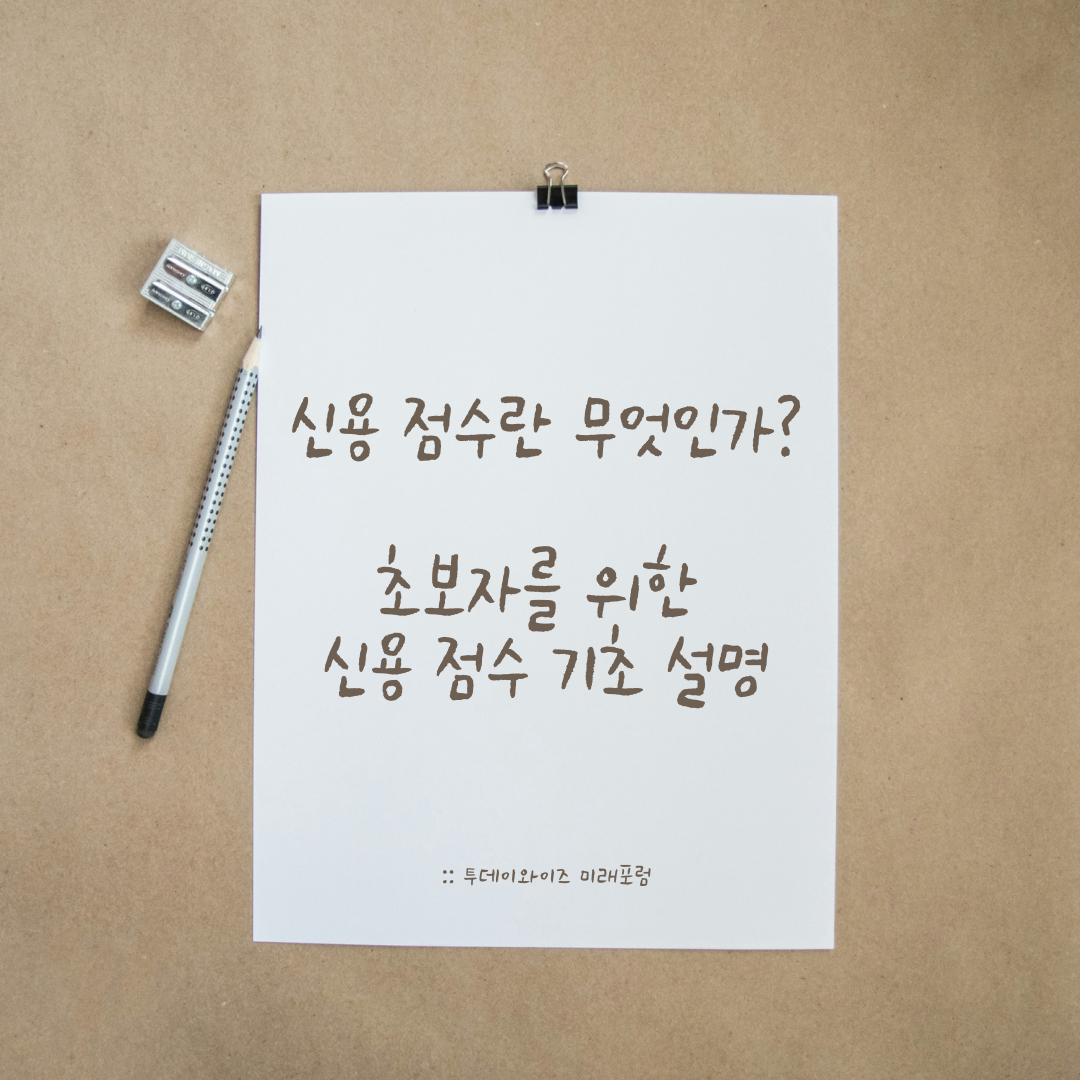 신용 점수란 무엇인가?
초보자를 위한
신용 점수 기초 설명
:: 투데이와이즈 미래포럼